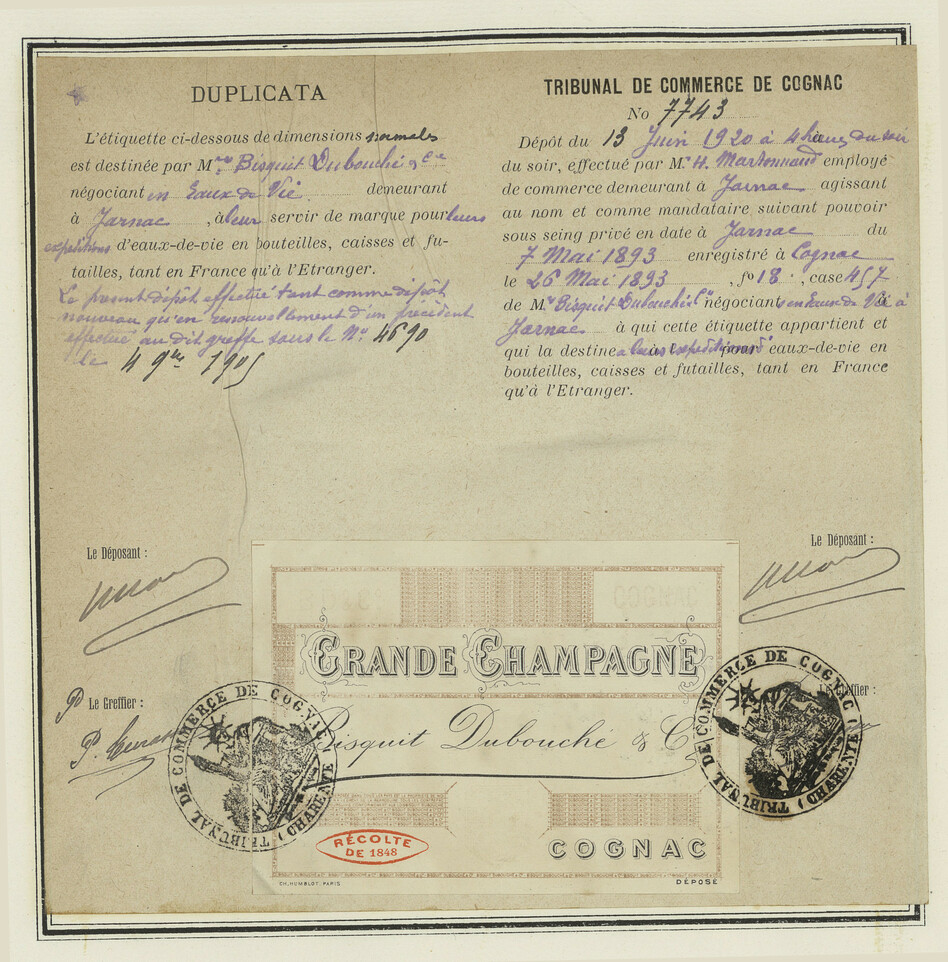 DUPLICATA
L'étiquette ci-dessous de dimensions normales
est destinée par Mrs Bisquit Dubouché & Cie
négociant en Eaux de Vie demeurant
à Jarnac, à leur servir de marque pour leurs
expéditions d'eaux-de-vie en bouteilles, caisses et fu-
tailles, tant en France qu'à l'Etranger.
Le présent dépôt effectué tant comme dépôt
nouveau qu'en renouvellement d'un précédent
effectué au dit greffe sous le No 4690
le 4 9bre 1905
Le Déposant :
P Le Greffier :
TRIBUNAL DE COMMERCE DE COGNAC
No 7743
Dépôt du 13 Juin 1920 à 4 heures du soir
du soir, effectué par Mr H. Martonnaud employé
de commerce demeurant à Jarnac agissant
au nom et comme mandataire suivant pouvoir
sous seing privé en date à Jarnac du
7 Mai 1893 enregistré à Cognac
le 26 Mai 1893, fo 18, case 457
de Mrs Bisquit Dubouché Cie négociants en Eaux de Vie à
Jarnac à qui cette étiquette appartient et
qui la destine à leurs expéditions d'eaux-de-vie en
bouteilles, caisses et futailles, tant en France
qu'à l'Etranger.
Le Déposant :
Le Greffier :
GRANDE CHAMPAGNE
Bisquit Dubouché & Co
RÉCOLTE
DE 1848
COGNAC
CH. HUMBLOT. PARIS
DÉPOSÉ
TRIBUNAL DE COMMERCE DE COGNAC (CHARENTE)
TRIBUNAL DE COMMERCE DE COGNAC (CHARENTE)